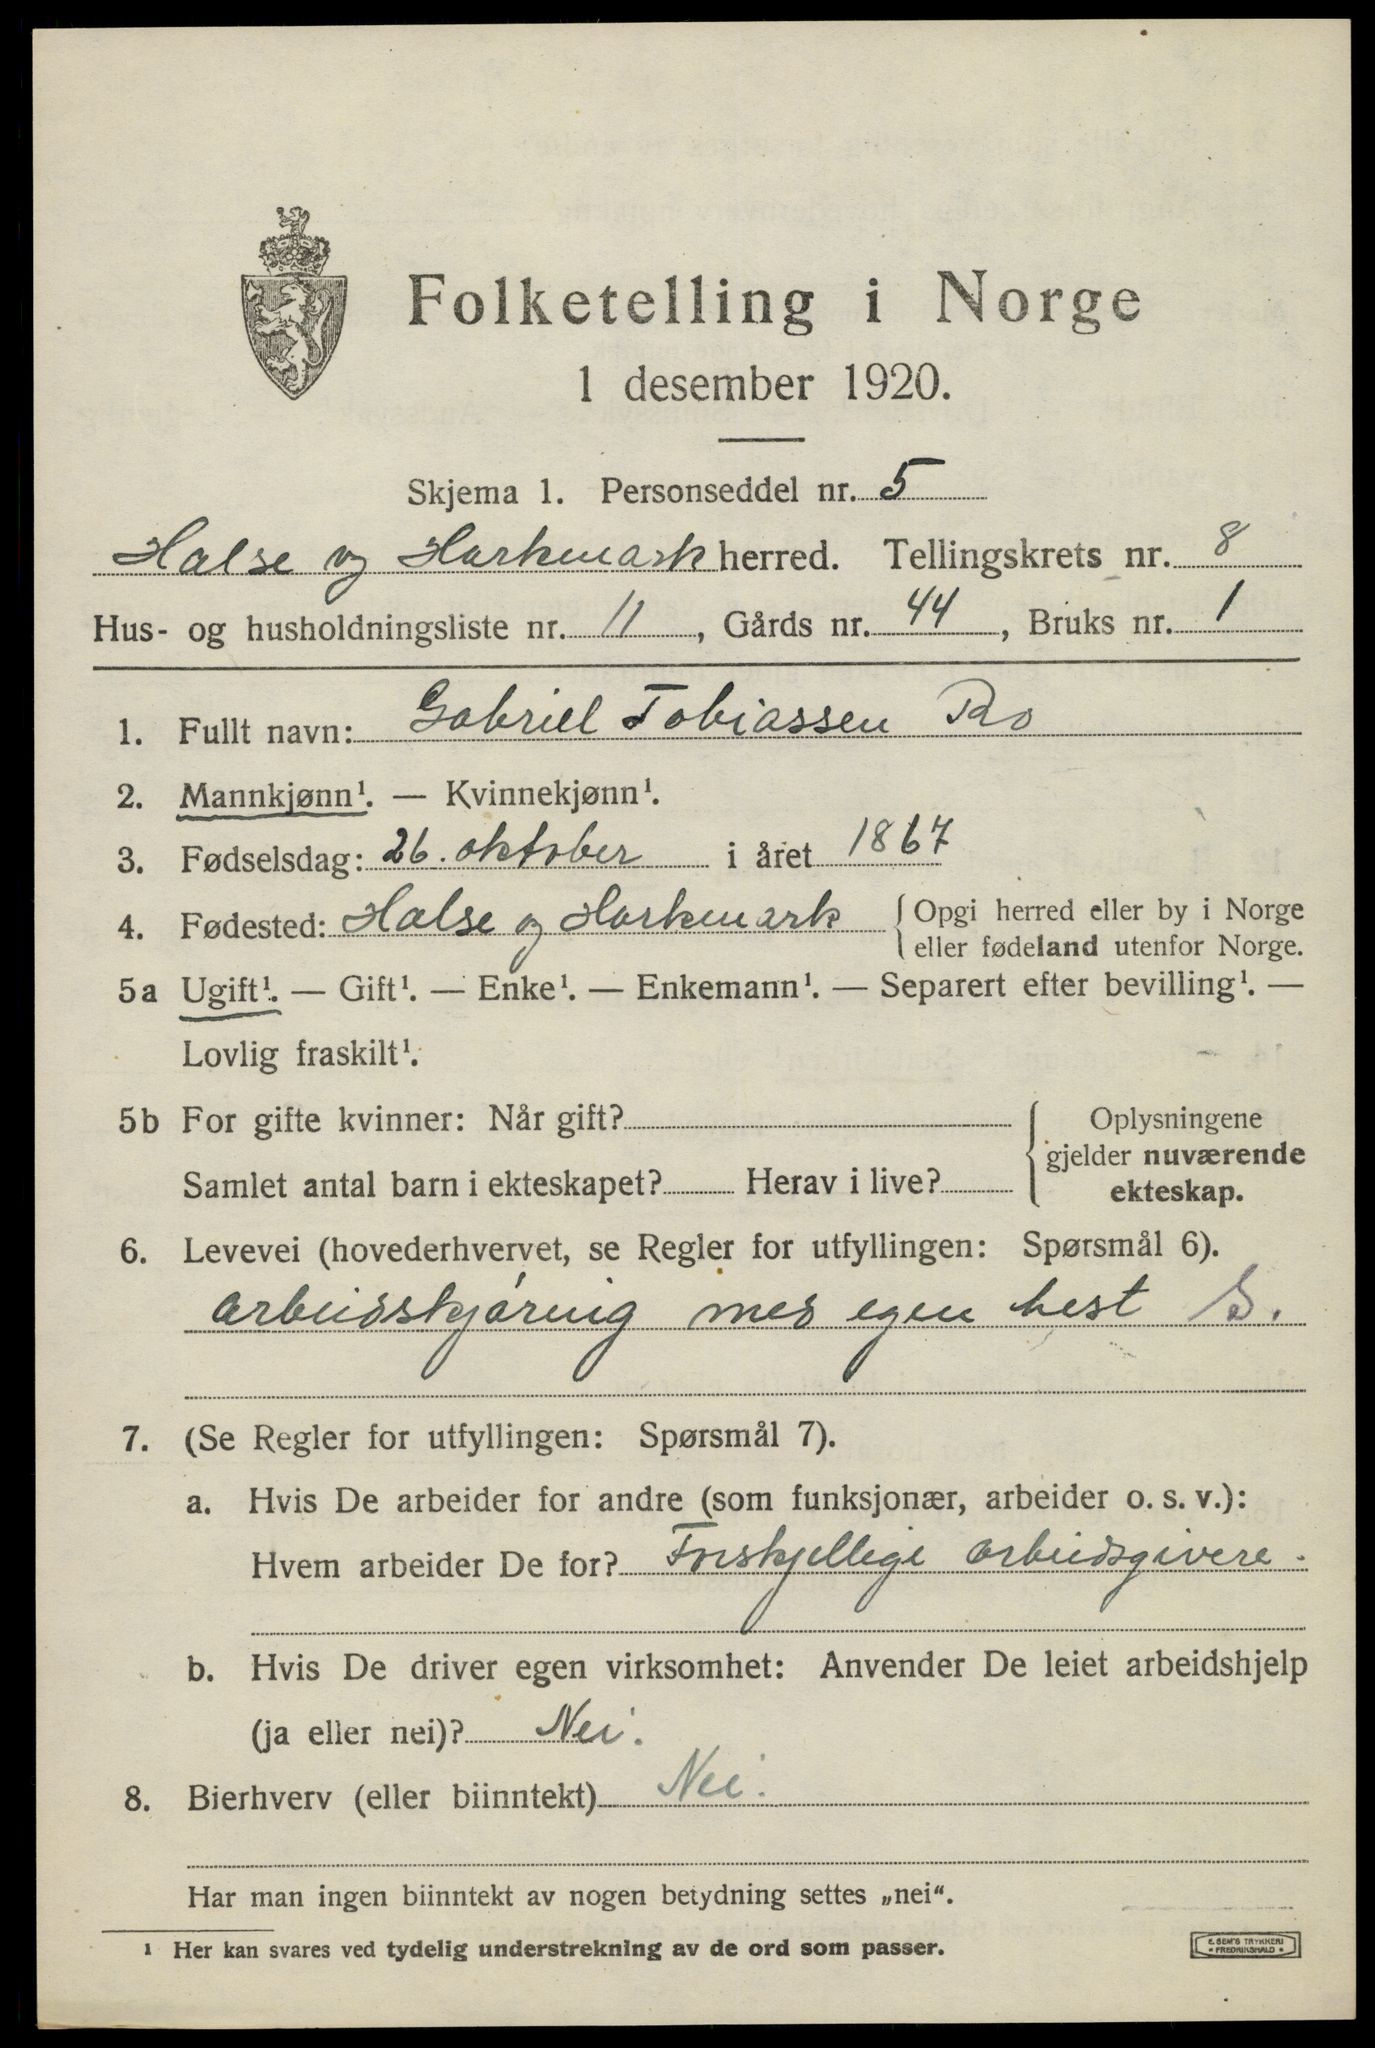 Folketelling i Norge
1 desember 1920.
Skjema 1. Personseddel nr. 5
Halse og Harkmark herred. Tellingskrets nr. 8
Hus- og husholdningsliste nr. 11, Gårds nr. 44, Bruks nr. 1
1. Fullt navn: Gabriel Tobiassen Ro
2. Mannkjønn¹. — Kvinnekjønn¹.
3. Fødselsdag: 26. oktober i året 1867
4. Fødested: Halse og Harkmark { Opgi herred eller by i Norge
eller fødeland utenfor Norge.
5a Ugift¹. — Gift¹. — Enke¹. — Enkemann¹. — Separert efter bevilling¹. —
Lovlig fraskilt¹.
5b For gifte kvinner: Når gift?
Samlet antal barn i ekteskapet? Herav i live?
{ Oplysningene
gjelder nuværende
ekteskap.
6. Levevei (hovederhvervet, se Regler for utfyllingen: Spørsmål 6).
arbeidskjøring med egen hest S.
7. (Se Regler for utfyllingen: Spørsmål 7).
a. Hvis De arbeider for andre (som funksjonær, arbeider o. s. v.):
Hvem arbeider De for? Forskjellige arbeidsgivere.
b. Hvis De driver egen virksomhet: Anvender De leiet arbeidshjelp
(ja eller nei)? Nei.
8. Bierhverv (eller biinntekt) Nei.
Har man ingen biinntekt av nogen betydning settes „nei“.
¹ Her kan svares ved tydelig understrekning av de ord som passer.
E. SEM'S TRYKKERI
• FREDRIKSHALD •